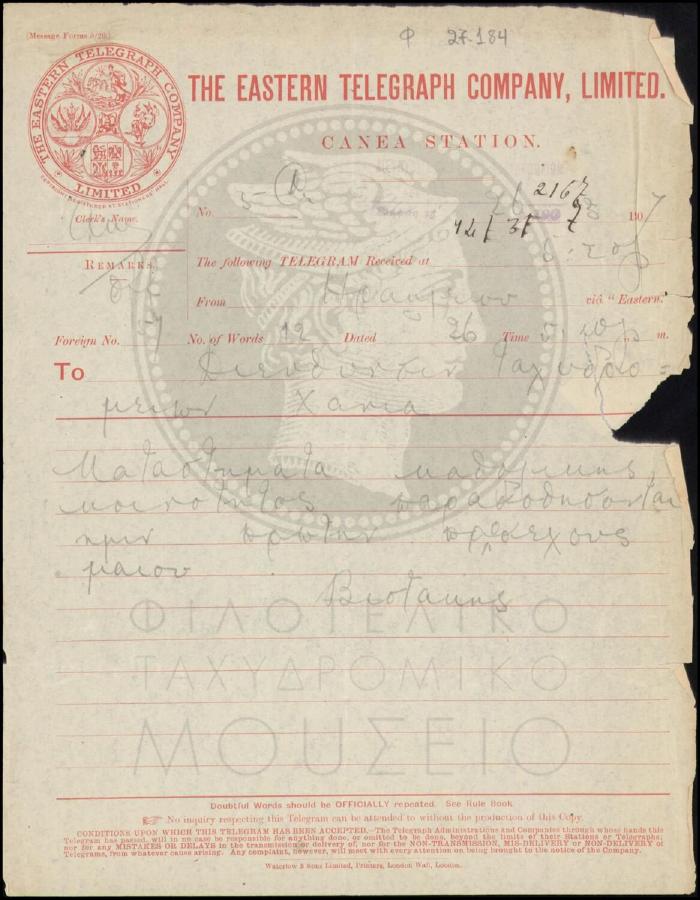 (Message Forms 8/20.)
Φ 27.184
THE EASTERN TELEGRAPH COMPANY
LIMITED
THE EASTERN TELEGRAPH COMPANY, LIMITED.
CANEA STATION.
2167
Clerk's Name.
No. 5
190 7
42/31/7
REMARKS.
The following TELEGRAM Received at
From Ηρακλειου viâ "Eastern."
Foreign No. No. of Words 12 Dated 26 Time m.
To Διευθυνσιν Ταχυδρο=
μειων Χανια
Καταστηματα καθολικης
κοινοτητος παραδοθησονται
ημιν πρωτην προσεχους
μαιου
Βιστακης
ΦΙΛΟΤΕΛΙΚΟ
ΤΑΧΥΔΡΟΜΙΚΟ
ΜΟΥΣΕΙΟ
Doubtful Words should be OFFICIALLY repeated. See Rule Book.
No inquiry respecting this Telegram can be attended to without the production of this Copy.
CONDITIONS UPON WHICH THIS TELEGRAM HAS BEEN ACCEPTED.—The Telegraph Administrations and Companies through whose hands this
Telegram has passed, will in no case be responsible for anything done, or omitted to be done, beyond the limits of their Stations or Telegraphs;
nor for any MISTAKES OR DELAYS in the transmission or delivery of, nor for the NON-TRANSMISSION, MIS-DELIVERY or NON-DELIVERY of
Telegrams, from whatever cause arising. Any complaint, however, will meet with every attention on being brought to the notice of the Company.
Waterlow & Sons Limited, Printers, London Wall, London.